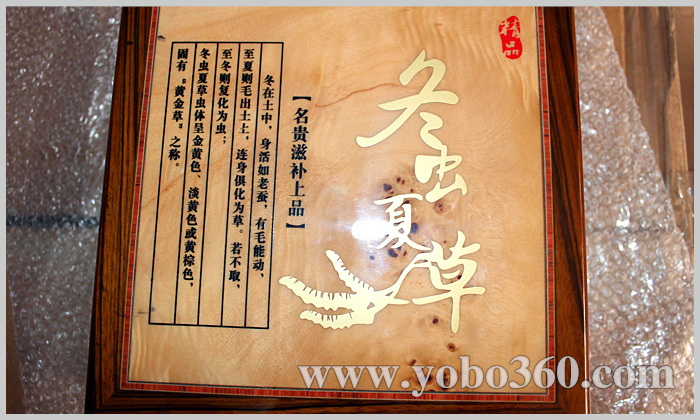 精品
冬虫夏草
【名贵滋补上品】
冬在土中，身活如老蚕，有毛能动，
至夏则毛出土上，连身俱化为草。若不取，
至冬则复化为虫；
冬虫夏草虫体呈金黄色、淡黄色或黄棕色，
固有“黄金草”之称。
www.yobo360.com